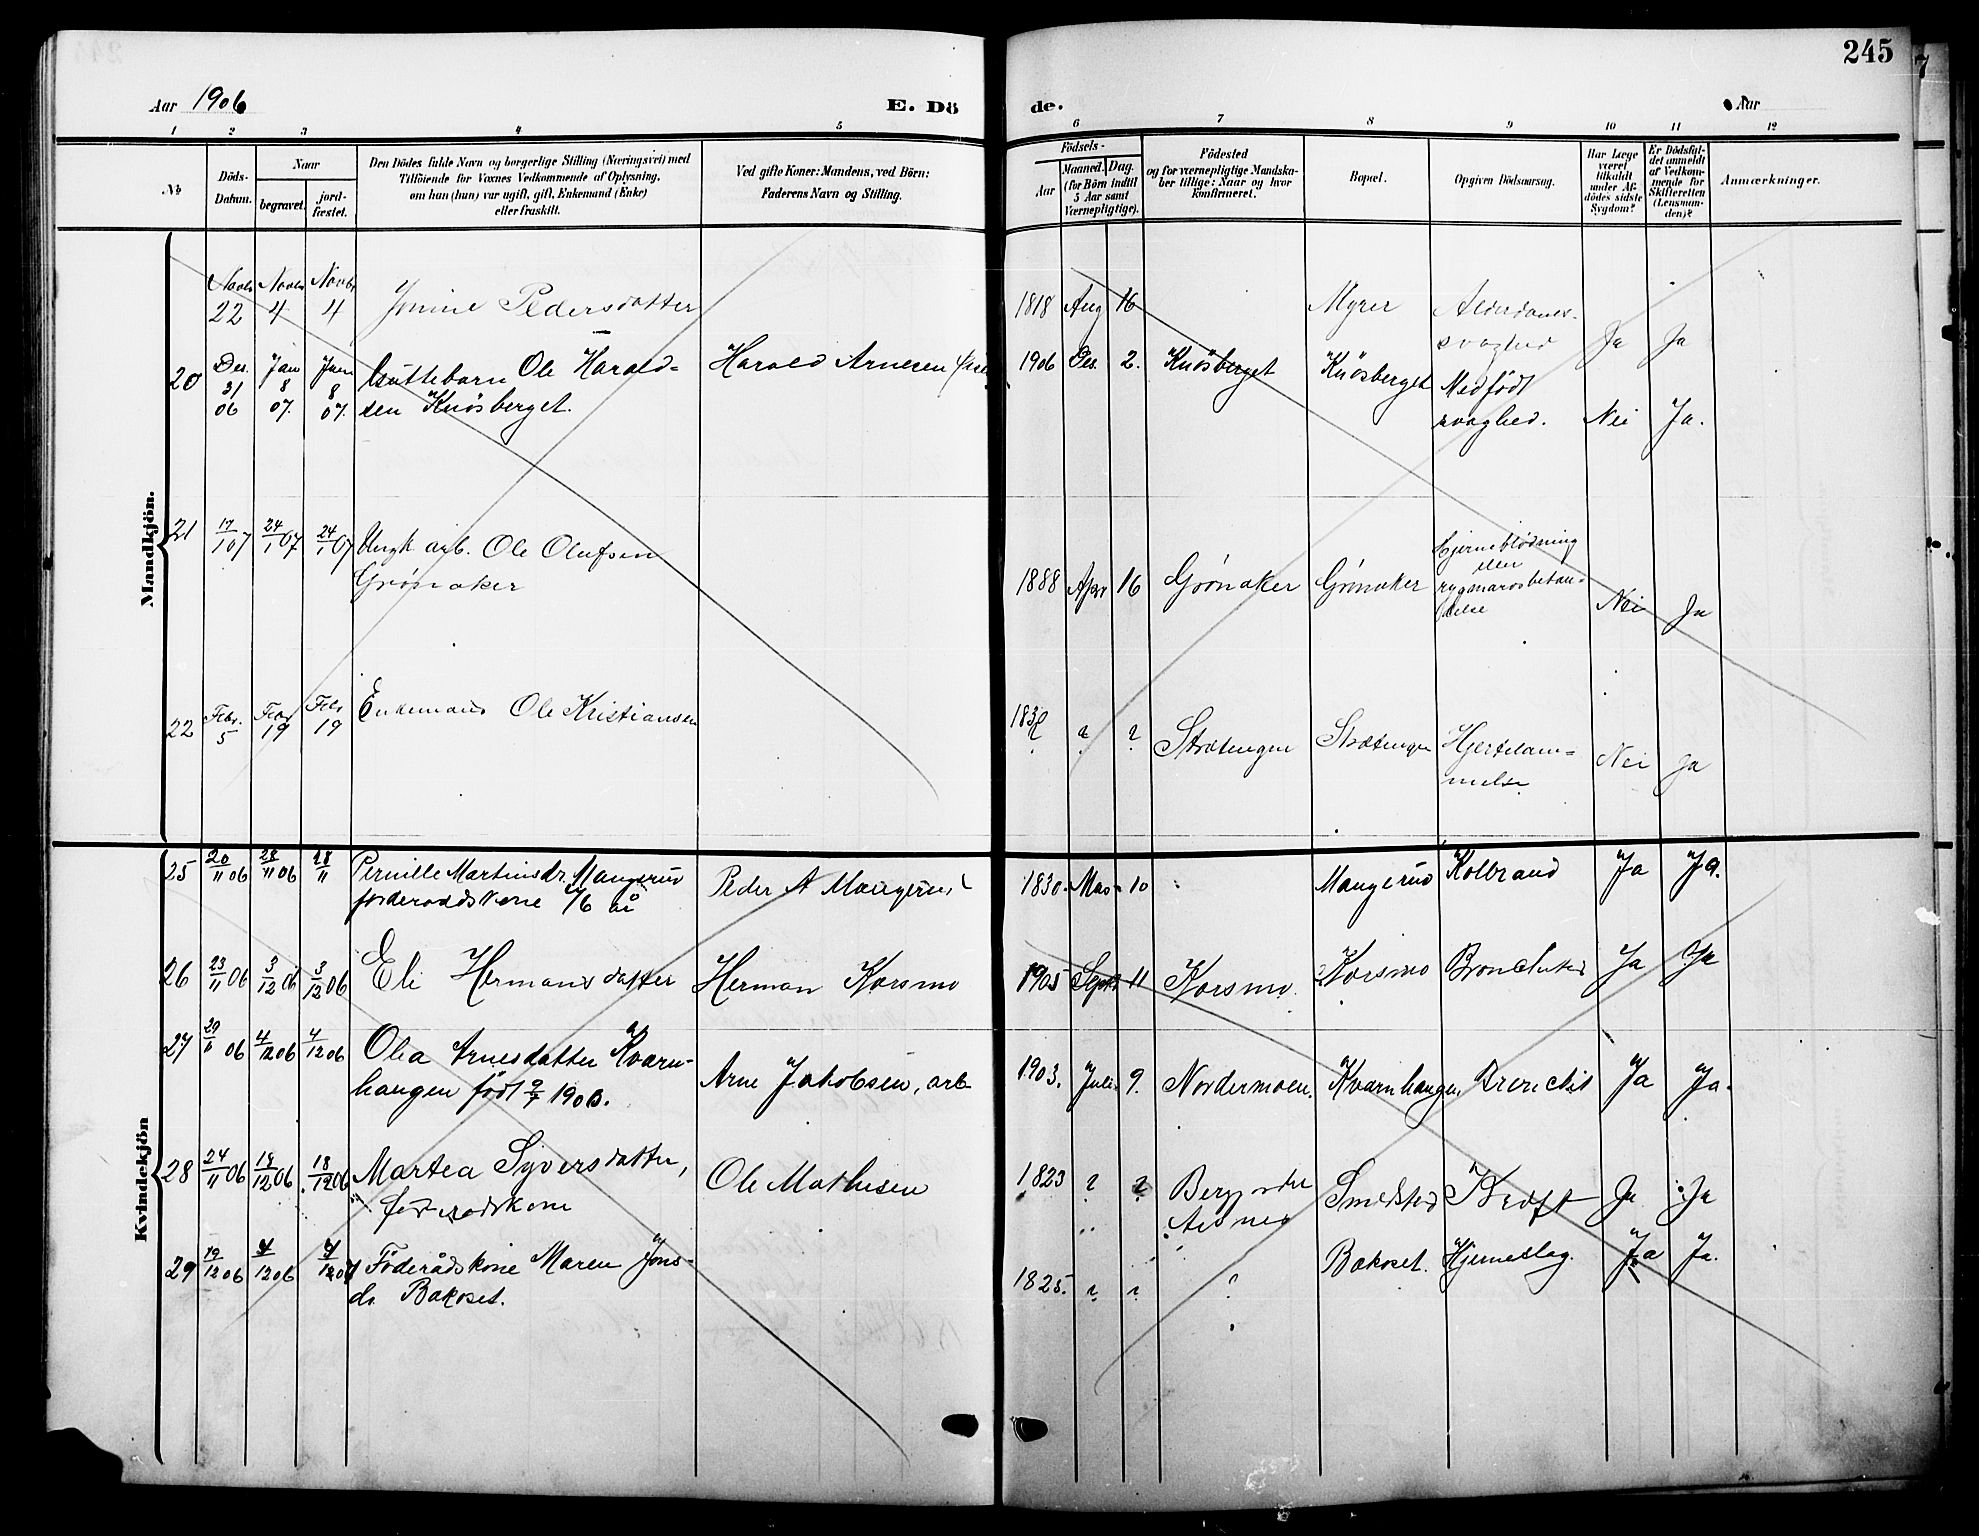 245
Aar 1906
E. Döde.
Aar
1 2 3 4 5 6 7 8 9 10 11 12
No
Döds-Datum.
Naar
begravet.
jord-fæstet.
Den Dödes fulde Navn og borgerlige Stilling (Næringsvei) med
Tilföiende for Voxnes Vedkommende af Oplysning,
om han (hun) var ugift, gift, Enkemand (Enke)
eller fraskilt.
Ved gifte Koner: Mandens, ved Börn:
Faderens Navn og Stilling.
Födsels-
Aar
Maaned. Dag.
(for Börn indtil
5 Aar samt
Værnepligtige).
Födested
og for værnepligtige Mandska-
ber tillige: Naar og hvor
konfirmeret.
Bopæl.
Opgiven Dödsaarsag.
Har Læge
været
tilkaldt
under Af-
dödes sidste
Sygdom?
Er Dödsfal-
det anmeldt
af Vedkom-
mende for
Skifteretten
(Lensman-
den)?
Anmærkninger.
Mandkjön.
22 4 4 Pedersdatter 1818 Aug 16 Myrer Alderdoms-
svaghed Ja Ja
20 Des. 31 06 Jan 8 07. Jan 8 07. Guttebarn Ole Harald-
sen Knösberget.
Harald Arnesen
1906 Des. 2. Knösberget Knösberget Medfödt
svaghed. Nei Ja.
21 17/1 07 24/1 07 24/1 07 Ungk arb. Ole Olufsen
Grønaker
1888 Apr 16 Grønaker Grønaker Hjerneblødning
eller
Nei Ja
22 Febr. 5 Febr 19 Febr 19 Enkemand Ole Kristiansen
? ? Strætengen Strætengen Hjertelam-
melse Nei Ja
Kvindekjön
25 20/11 06 28/11 06 28/11 Pernille Martinsdr. Mangerud
76 år
Peder A Mangerud
1830 10 Mangerud Koldbrand Ja Ja.
26 23/11 06 3/12 06 3/12 06 Eli Hermansdatter Herman Korsmo
1905 Septr 11 Korsmo. Korsmo Ja Ja
27 29/11 06 4/12 06 4/12 06 Olea Arnesdatter Kværn-
haugen født 9/7 1903.
Arne Jakobsen, arb
1903. Juli 9. Nordermoen. Kværnhaugen Ja Ja.
28 24/11 06 18/12 06 18/12 06 Martea Syversdatter,
Ole Mathisen
1823 ? ? Smedstad Kreft Ja Ja
29 19/12 06 Föderådskone Maren Jons-
dr. Bakoset.
1825. ? ? ? Bakoset. Hjerneslag. Ja Ja.